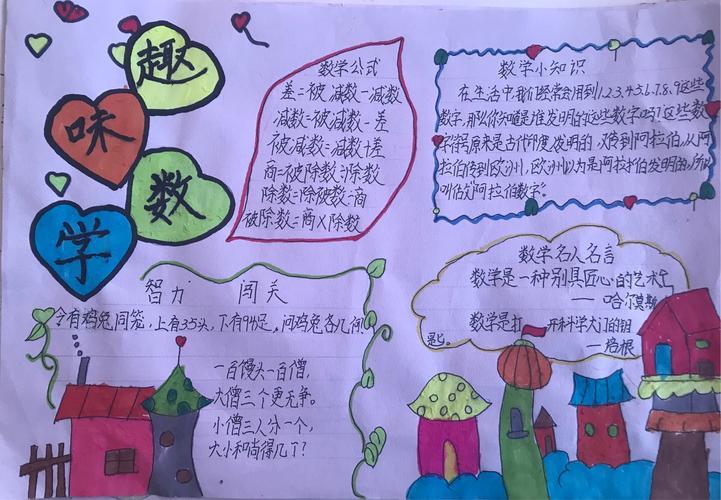 趣
味
数
学
数学公式
差=被减数-减数
减数=被减数-差
被减数=减数+差
商=被除数÷除数
除数=除被数÷商
被除数=商×除数
数学小知识
在生活中,我们经常会用到1,2,3,4,5,6,7,8,9这些
数字,那么你知道是谁发明的这些数字吗?这些数
字符号原来是古代印度发明的,
传到阿拉伯,从阿
拉伯传到欧洲,欧洲人以为是阿拉伯发明的,所以
叫做阿拉伯数字。
数学名人名言
数学是一种别具匠心的艺术
——哈尔莫斯
数学是打开科学大门的钥
匙。
——培根
智力 闯关
今有鸡兔同笼,上有35头,下有94足,问鸡兔各几何
一百馒头一百僧,
大僧三个更无争。
小僧三人分一个,
大小和尚得几丁?